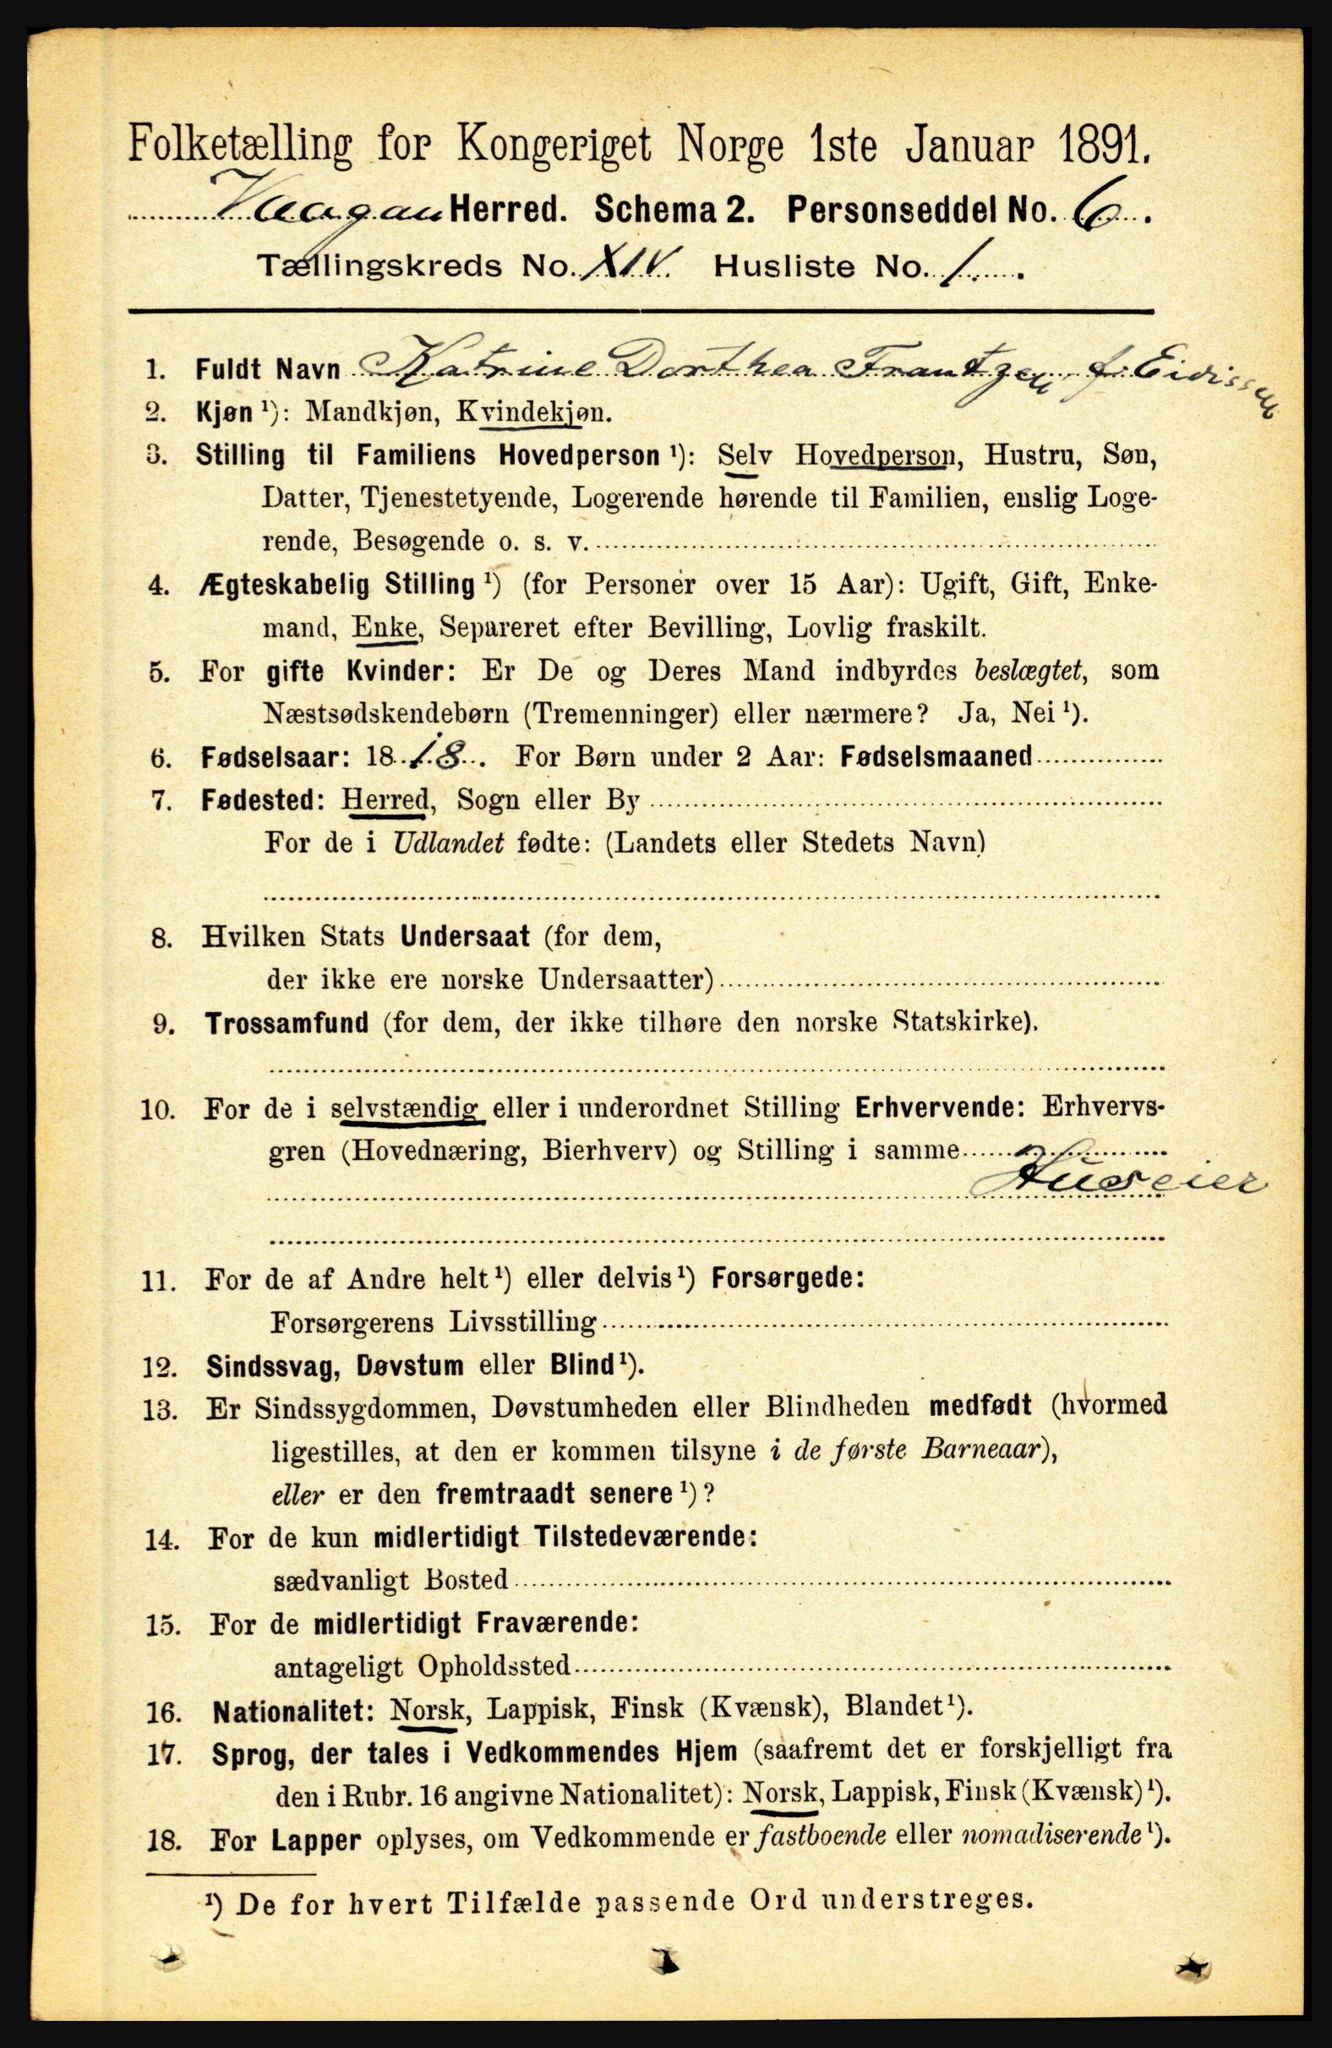 Folketælling for Kongeriget Norge 1ste Januar 1891.
Vaagan Herred. Schema 2. Personseddel No. 6.
Tællingskreds No. XIV. Husliste No. 1.
1. Fuldt Navn Katrine Dorthea Frantzen f. Eidissen
2. Kjøn ¹): Mandkjøn, Kvindekjøn.
3. Stilling til Familiens Hovedperson ¹): Selv Hovedperson, Hustru, Søn,
Datter, Tjenestetyende, Logerende hørende til Familien, enslig Loge-
rende, Besøgende o. s. v.
4. Ægteskabelig Stilling ¹) (for Personer over 15 Aar): Ugift, Gift, Enke-
mand, Enke, Separeret efter Bevilling, Lovlig fraskilt.
5. For gifte Kvinder: Er De og Deres Mand indbyrdes beslægtet, som
Næstsødskendebørn (Tremenninger) eller nærmere? Ja, Nei ¹).
6. Fødselsaar: 1818. For Børn under 2 Aar: Fødselsmaaned
7. Fødested: Herred, Sogn eller By
For de i Udlandet fødte: (Landets eller Stedets Navn)
8. Hvilken Stats Undersaat (for dem,
der ikke ere norske Undersaatter)
9. Trossamfund (for dem, der ikke tilhøre den norske Statskirke).
10. For de i selvstændig eller i underordnet Stilling Erhvervende: Erhvervs-
gren (Hovednæring, Bierhverv) og Stilling i samme
Huseier
11. For de af Andre helt ¹) eller delvis ¹) Forsørgede:
Forsørgerens Livsstilling
12. Sindssvag, Døvstum eller Blind ¹).
13. Er Sindssygdommen, Døvstumheden eller Blindheden medfødt (hvormed
ligestilles, at den er kommen tilsyne i de første Barneaar),
eller er den fremtraadt senere ¹)?
14. For de kun midlertidigt Tilstedeværende:
sædvanligt Bosted
15. For de midlertidigt Fraværende:
antageligt Opholdssted
16. Nationalitet: Norsk, Lappisk, Finsk (Kvænsk), Blandet ¹).
17. Sprog, der tales i Vedkommendes Hjem (saafremt det er forskjelligt fra
den i Rubr. 16 angivne Nationalitet): Norsk, Lappisk, Finsk (Kvænsk) ¹).
18. For Lapper oplyses, om Vedkommende er fastboende eller nomadiserende ¹).
¹) De for hvert Tilfælde passende Ord understreges.